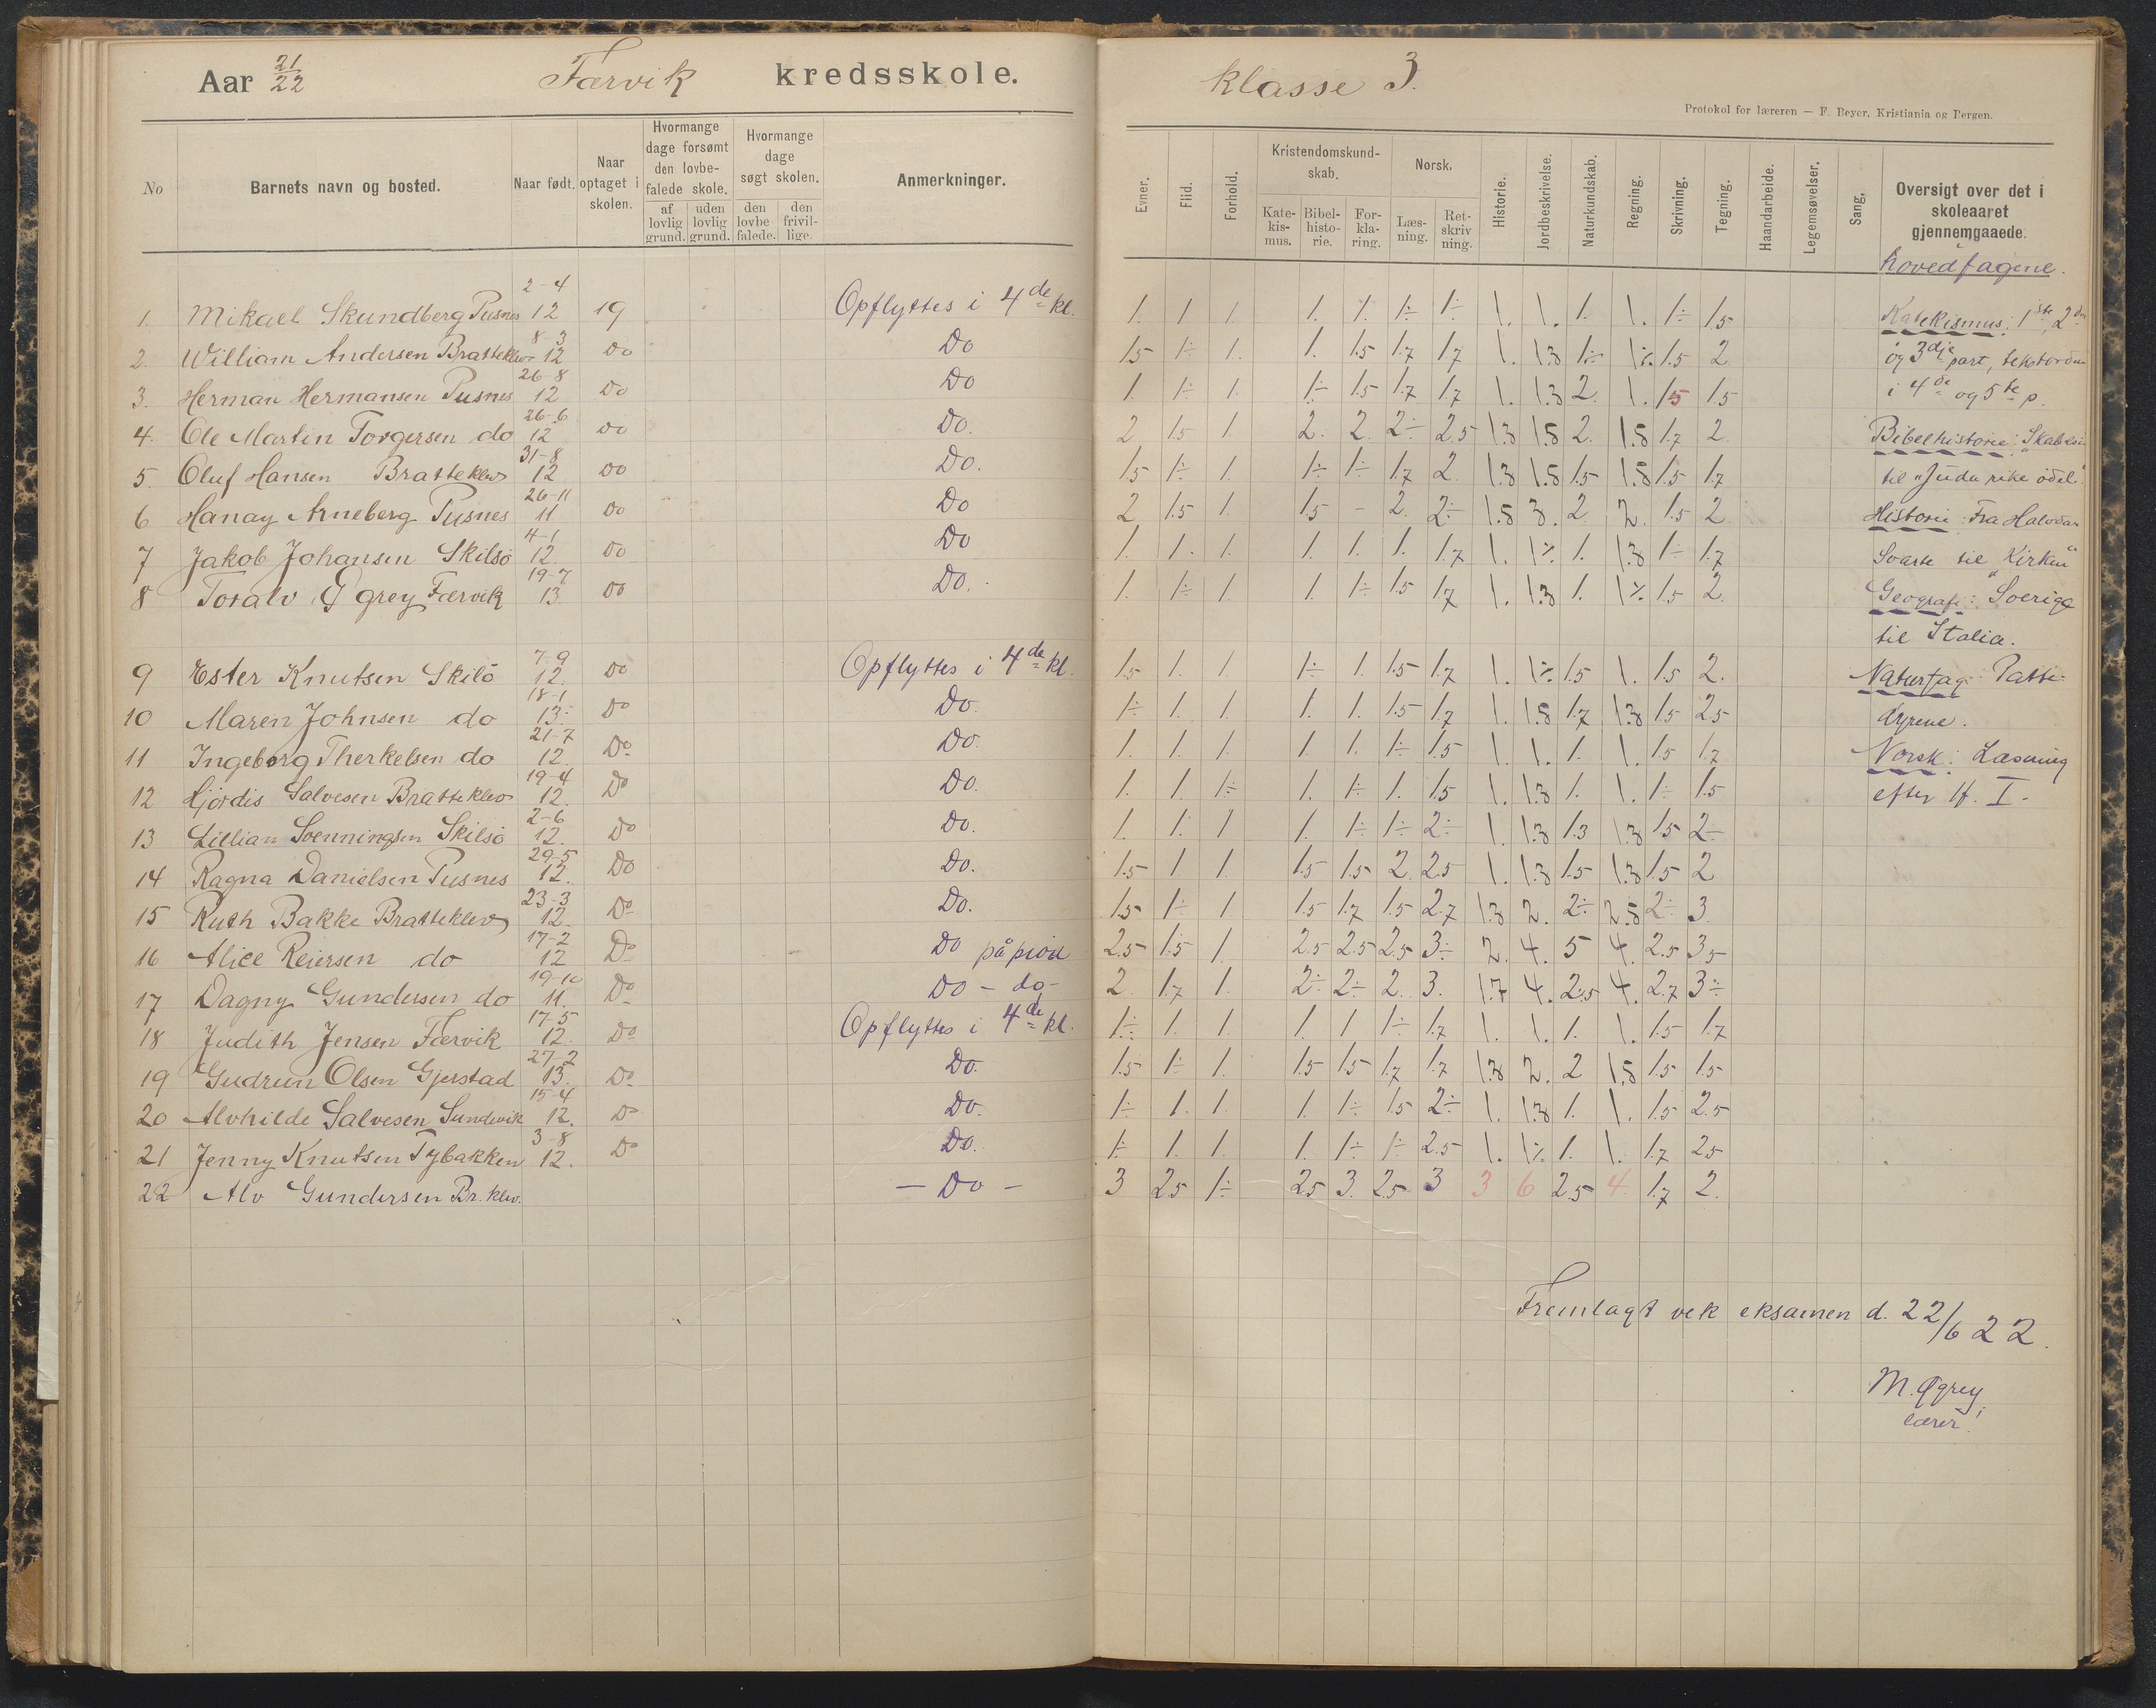 Aar 21/22 Færvik kredsskole.
No Barnets navn og bosted. Naar født. Naar optaget i skolen. Hvormange dage forsømt den lovbefalede skole. af lovlig grund. uden lovlig grund. Hvormange dage søgt skolen. den lovbefalede. den frivillige. Anmerkninger.
1. Mikael Skundberg Pusnes 2-4 12 19 Opflyttes i 4de kl.
2. William Andersen Bratteklev 8-3 12 Do Do
3. Herman Hermansen Pusnes 26-8 12 Do Do
4. Ole Martin Torgersen do 26-6 12 Do Do.
5. Oluf Hansen Bratteklev 31-8 12 Do Do.
6 Hanay Arneberg Pusnes 26-11 11 Do Do
7 Jakob Johansen Skilsø 4-1 12 Do Do
8 Toralv Øgrey Færvik 19-7 13. Do Do.
9 Ester Knutsen Skilø 7-9 12. Do Opflyttes i 4de kl.
10 Maren Johnsen do 18-1 13. Do Do.
11 Ingeborg Therkelsen do 21-7 12. Do Do.
12 Hjördis Salvesen Bratteklev 19-4 12. Do Do.
13 Lillian Svenningsen Skilsö 2-6 12. Do Do.
14 Ragna Danielsen Pusnes 29-5 12. Do Do.
15 Ruth Bakke Bratteklev 23-3 12. Do Do.
16 Alice Reiersen do 17-2 12 Do Do på prøve
17 Dagny Gundersen do 19-10 11. Do Do - do -
18 Judith Jensen Færvik 17-5 12. Do Opflyttes i 4de kl.
19 Gudrun Olsen Gjerstad 27-2 13. Do Do.
20 Alvhilde Salvesen Sundevik 15-4 12. Do Do.
21 Jenny Knutsen Tybakken 3-8 12. Do Do.
22 Alv Gundersen Br.klev. - Do -
klasse 3.
Protokol for læreren — F. Beyer, Kristiania og Bergen.
Evner. Flid. Forhold. Kristendomskundskab. Katekismus. Bibelhistorie. Forklaring. Norsk. Læsning. Retskrivning. Historie. Jordbeskrivelse. Naturkundskab. Regning. Skrivning. Tegning. Haandarbeide. Legemsøvelser. Sang. Oversigt over det i skoleaaret gjennemgaaede.
1. 1 1. 1. 1. 1÷ 1÷ 1. 1. 1. 1. 1÷ 1.5
1.5 1÷ 1. 1. 1.5 1.7 1.7 1. 1.3 1÷ 1÷ 1.5 2
1. 1÷ 1. 1÷ 1.5 1.7 1.7 1. 1.3 2. 1. 1.5 1.5
2 1.5 1. 2. 2. 2÷ 2.5 1.3 1.8 2. 1.8 1.7 2
1.5 1÷ 1. 1÷ 1÷ 1.7 2. 1.3 1.8 1.5 1.8 1.5 1.7
2 1.5 1. 1.5 - 2. 2÷ 1.8 3. 2. 2. 1.5 2
1. 1. 1. 1. 1. 1. 1.7 1. 1÷ 1. 1.3 1÷ 1.7
1. 1÷ 1. 1. 1÷ 1.5 1.7 1. 1.3 1. 1÷ 1.5 2.
1.5 1. 1. 1÷ 1. 1.5 1.7 1. 1÷ 1.5 1. 1.5 2.
1÷ 1. 1. 1. 1. 1.5 1.7 1. 1.8 1.7 1.3 1.5 2.5
1. 1. 1. 1. 1. 1÷ 1.5 1. 1. 1. 1. 1.5 1.7
1. 1. 1÷ 1. 1÷ 1. 1.5 1. 1.3 1. 1. 1÷ 1.5
1. 1. 1 1. 1÷ 1÷ 2÷ 1. 1.3 1.3 1.3 1.5 2÷
1.5 1 1 1.5 1.5 2. 2.5 1. 1.3 1.5 1.3 1.5 2
1.5 1÷ 1 1.5 1.7 1.5 2.7 1.3 2. 2÷ 2.8 2÷ 3
2.5 1.5 1. 2.5 2.5 2.5 3÷ 2. 4. 5 4. 2.5 3.5
2. 1.7 1. 2÷ 2÷ 2. 3. 1.7 4. 2.5 4. 2.7 3÷
1÷ 1. 1. 1. 1 1÷ 1.7 1. 1. 1. 1. 1.5 1.7
1.5 1÷ 1. 1.5 1.5 1.7 1.7 1.3 2. 2 1.8 1.5 1.5
1÷ 1. 1. 1. 1÷ 1.5 2÷ 1. 1.3 1. 1. 1.5 2.5
1÷ 1. 1. 1. 1÷ 1÷ 2.5 1. 1÷ 1. 1. 1.7 2.5
3 2.5 1÷ 2.5 3. 2.5 3 3 6 2.5 4 1.7 2.
hovedfagene.
Katekismus: 1ste, 2den
og 3dje part, tekstordene
i 4de og 5te p.
Bibelhistorie: "Skabelsen
til "Juda rike ødel."
Historie: Fra Halvdan
Svarte til "Kirken"
Geografi: Sverige
til Italia.
Naturfag: Patte-
dyrene.
Norsk: Læsning
efter If. I.
Fremlagt vek eksamen d. 22/6 22.
M. Øgrey,
lærer.